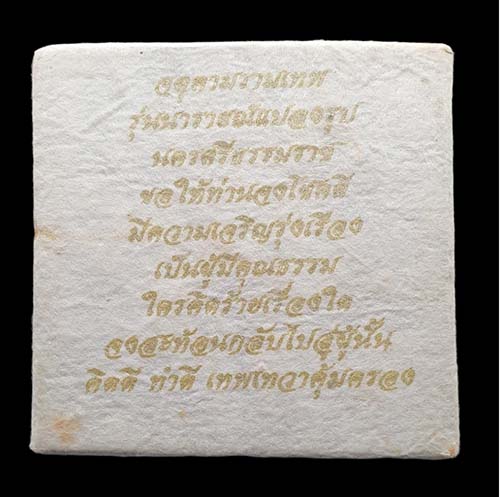 จตุคามรามเทพ
รุ่นนารายณ์แปลงรูป
นครศรีธรรมราช
ขอให้ท่านจงโชคดี
มีความเจริญรุ่งเรือง
เป็นผู้มีคุณธรรม
ใครคิดร้ายเรื่องใด
จงสะท้อนกลับไปสู่ผู้นั้น
คิดดี ทำดี เทพเทวาคุ้มครอง